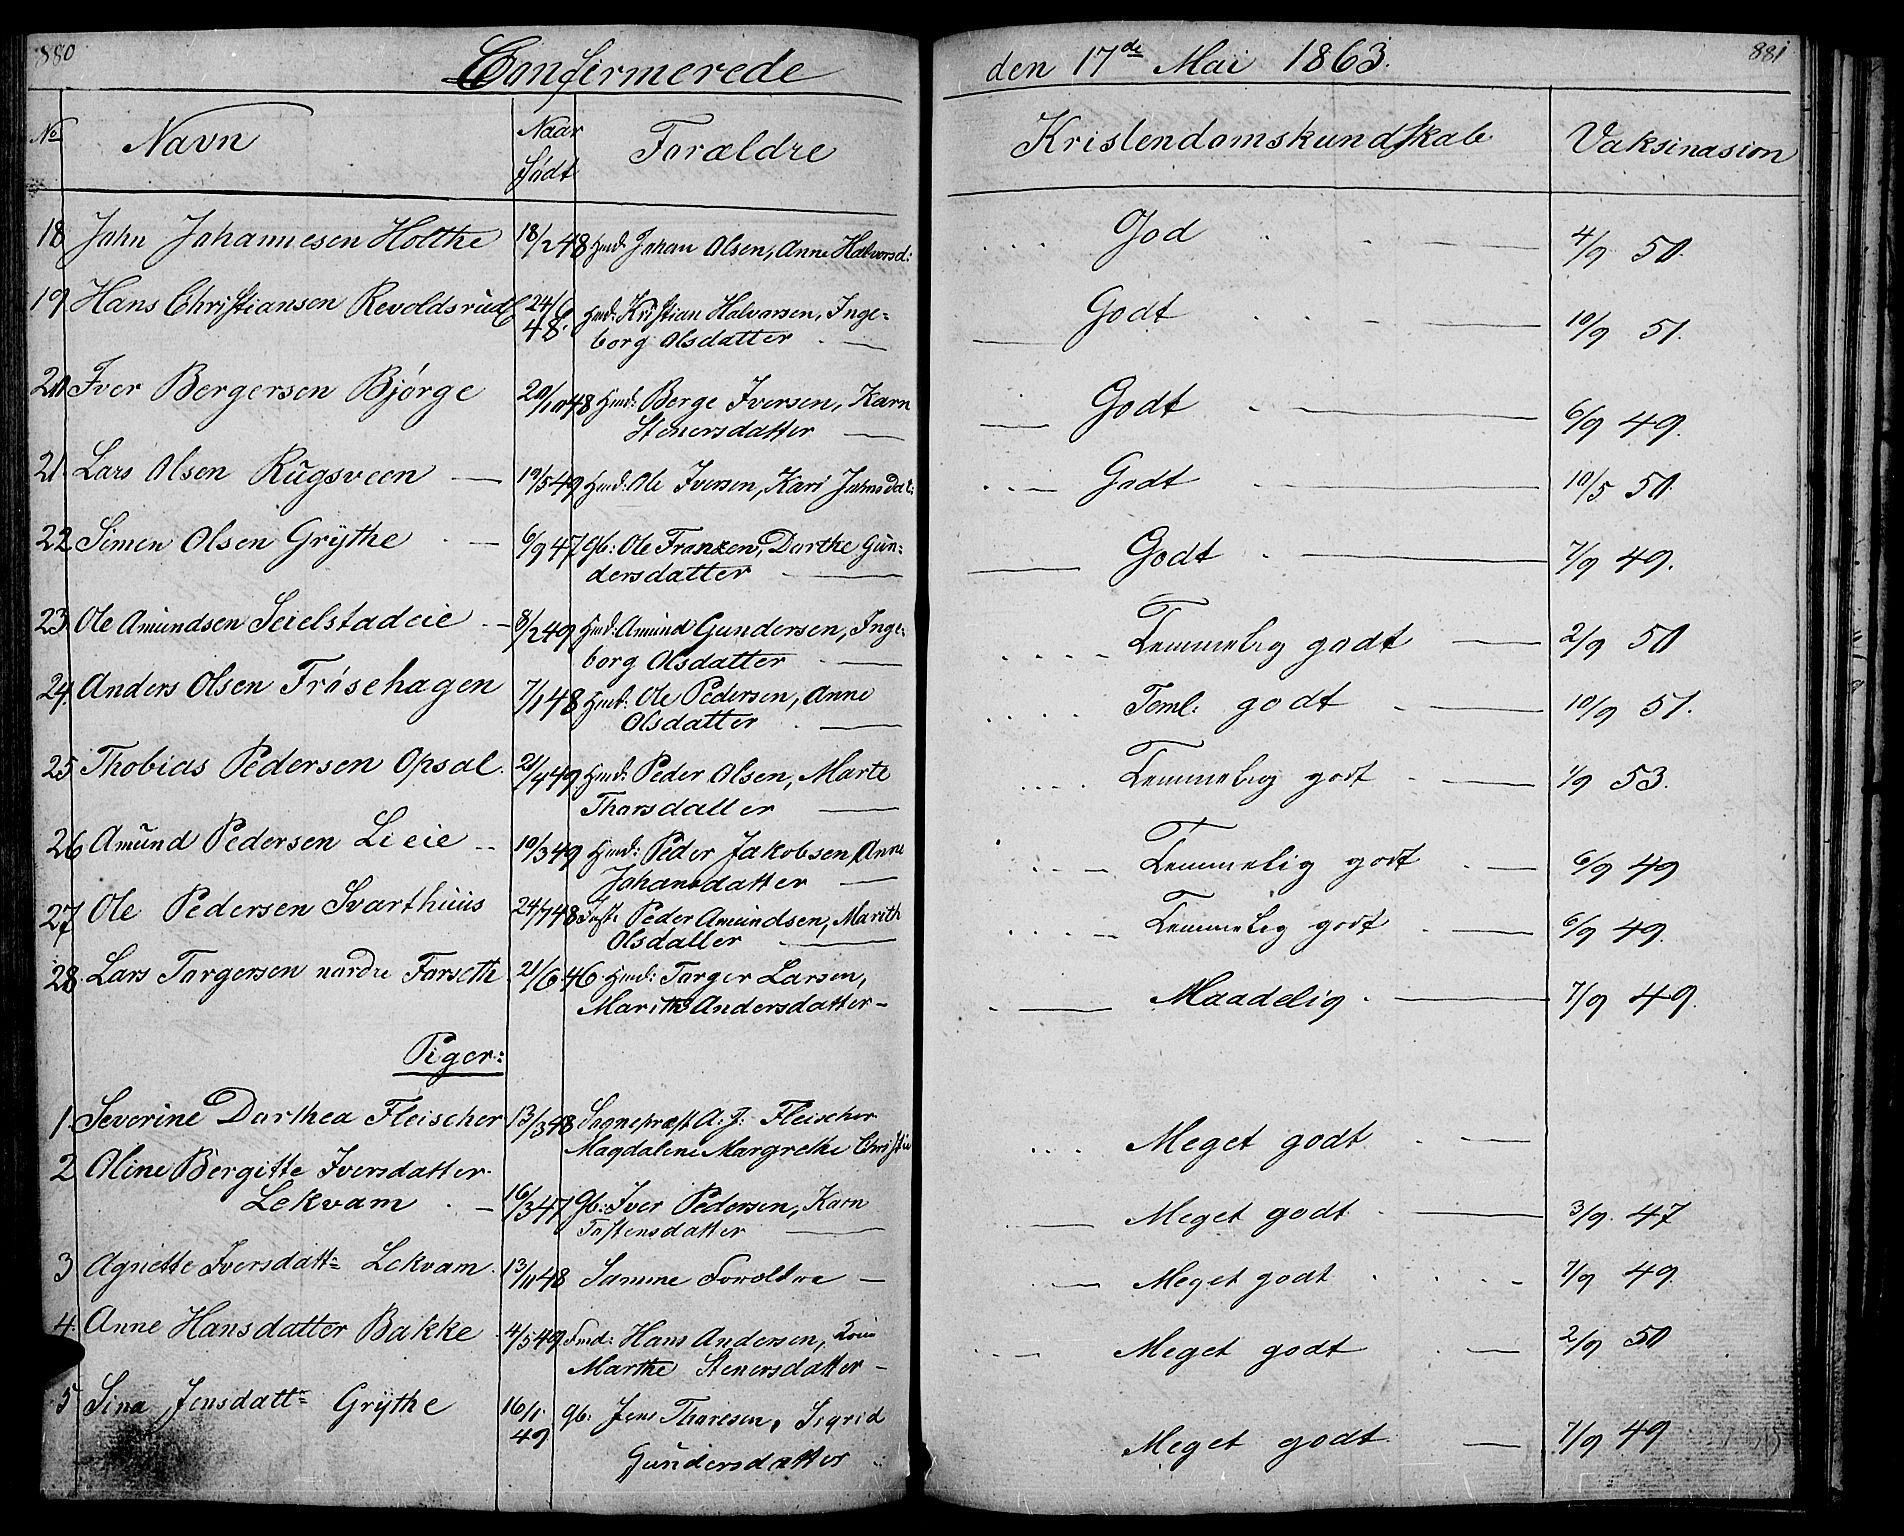 880
Confirmerede
No
Navn
Naar
Født
Forældre
18 John Johannesen Holthe 18/2 48 Hmd: Johan Olsen, Anne Halvorsd:
19 Hans Christiansen Revoldsrud 24/6 48. Hmd: Kristian Halvorsen, Inge-
borg Olsdatter
20 Iver Bergersen Bjørge 20/10 48 Hmd: Berge Iversen, Karn
Stenersdatter
21. Lars Olsen Rugsveen 19/5 49 Hmd: Ole Iversen, Kari
22 Simen Olsen Grythe 6/9 47 gb: Ole Franzen, Dorthe Gun-
dersdatter
23 Ole Amundsen Seielstadeie 8/2 49 Hmd: Amund Gundersen, Inge-
borg Olsdatter
24. Anders Olsen Frøsehagen 7/1 48 Hmd: Ole Pedersen, Anne
Olsdatter
25 Thobias Pedersen Opsal. 21/4 49 Hmd: Peder Olsen, Marte
Thorsdatter
26 Amund Pedersen Lieie 10/3 49 Hmd: Peder Jakobsen, Anne
Johansdatter
27 Ole Pedersen Svarthuus 24/7 48 Peder Amundsen, Marith
Olsdatter
28. Lars Torgersen nordre Forseth 21/6 46 Hmd: Torger Larsen,
Marith Andersdatter
Piger:
1. Severine Dorthea Fleischer 13/3 48 Sognepræst A. J. Fleischer
Magdalene Margrethe Christie
2 Oline Bergitte Iversdatter
Lekvam 16/3 47 gb: Iver Pedersen, Karn
Tostensdatter
3 Agnette Iversdatt= Lekvam 13/11 48 Samme Foroldre
4. Anne Hansdatter Bakke 4/5 49 Fmd: Hans Andersen,
Marthe Stenersdatter
5 Sina Jensdatt= Grythe 16/1 49 gb: Jens Thoresen, Sigrid
Gundersdatter
881
den 17de Mai 1863.
Kristendomskundskab Vaksinasion
God 4/9 50.
Godt 10/9 51.
Godt 6/9 49.
Godt 10/5 50.
Godt 7/9 49.
Temmelig godt 2/9 50
Teml: godt 10/9 51.
Temmelig godt 1/9 53.
Temmelig godt 6/9 49
Temmelig godt 6/9 49.
Maadelig 7/9 49.
Meget godt
Meget godt 3/9. 47
Meget godt 7/9 49.
Meget godt 2/9 50
Meget godt 7/9 49